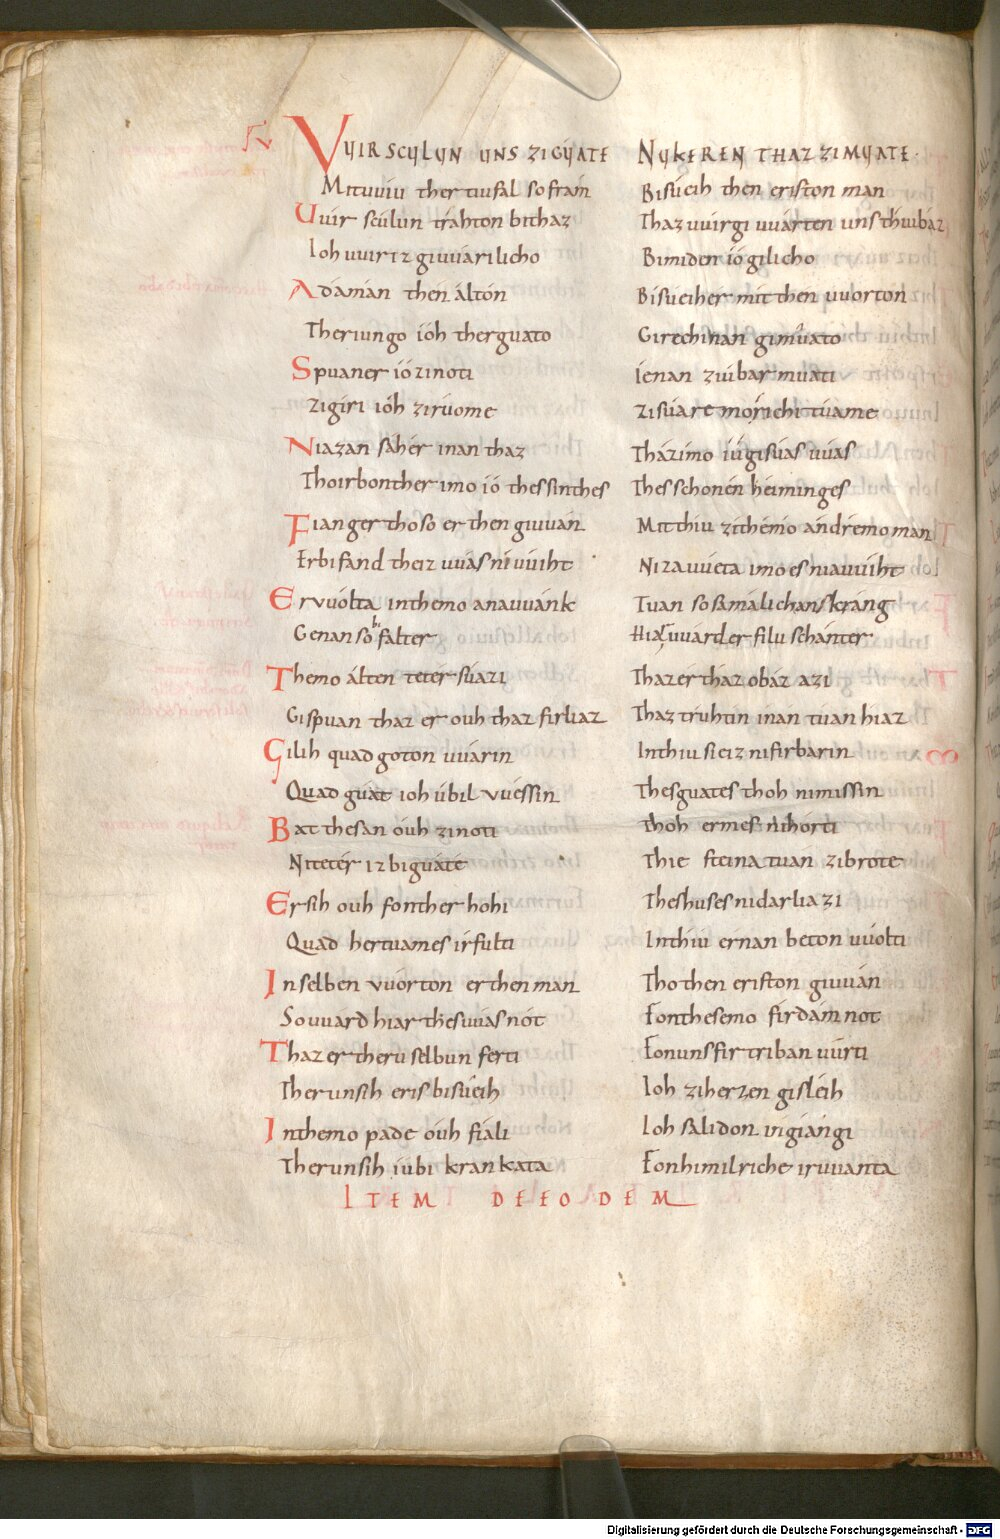 ɼv VVIR SCVLVN VNS ZIGVATE NVKEREN THAZ ZIMVATE
Mituuiu ther tiufal so fram Bisueih then eriston man
Vuir sculun trahton bithaz Thaz uuirgi uuarten uns thiubaz
Ioh uuir iz giuuari licho Bimiden io gilicho
Adaman then alton Bisueiher mit then uuorton
Ther iungo ioh ther guato Girechinan gimuato
Spuaner io zinoti Ienan zuibar muati
zigiri ioh ziruome zisuaremo richituame
Niazan saher inan thaz Thaz imo iu gisuas uuas
Thoir bonther imo io thes sinthes Thes schonen heiminges
Fianger tho so er then giuuan Mit thiu zi themo andremo man
Er bifand theiz uuas niuuiht Ni zauueta imo es niauuiht
Er uuolta in themo anauuank Tuan so sama lichan skrang
Genan so bifalter Hiar uuard er filu schanter
Themo alten teter suazi Thaz er thaz obaz azi
Gispuan thaz er ouh thaz firliaz Thaz truhtin inan tuan hiaz
Gilih quad goton uuarin In thiu sie iz ni firbarin
Quad guat ioh ubil uuessin Thes guates thoh ni missin
Bat thesan ouh zinoti Thoh er mes ni horti
Ni teter iz bi guate Thie steina tuan zi brote
Er sih ouh fon ther hohi Thes huses nidar liazi
Quad her tuames irfulti In thiu er nan beton uuolti
In selben uuorton er then man Tho then eriston giuuan
So uuard hiar thes uuas not Fon thesemo firdamnot
Thaz er theru selbun ferti Fon uns firtriban uurti
Ther unsih eris bisueih Ioh zi herzen gisleih
In themo pade ouh fiali Ioh salidon ingiangi
Ther unsih iu bi kranka ta Fon himilriche iruuanta
ITEM DE EODEM
Digitalisierung gefördert durch die Deutsche Forschungsgemeinschaft - DFG